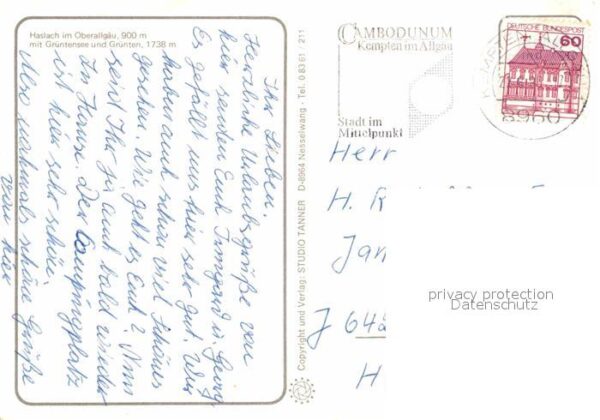 Haslach im Oberallgäu, 900 m
mit Grüntensee und Grünten, 1738 m
Ihr Lieben.
Herzliche Urlaubsgrüße von
hier senden Euch Irmgard u. Georg
Es gefällt uns hier sehr gut. Wir
haben auch schon viel Schönes
gesehen. Wie geht es Euch? Nun
seid Ihr ja auch bald wieder
zu Hause. Der Campingplatz
ist hier sehr schön.
Also nochmals schöne Grüße
von hier
Copyright und Verlag: STUDIO TANNER D-8964 Nesselwang · Tel. 0 83 61 / 211
CAMBODUNUM
Kempten im Allgäu
Stadt im
Mittelpunkt
DEUTSCHE BUNDESPOST
60
8960
Herr
H. R
Jan
privacy protection
Datenschutz
J 642
H